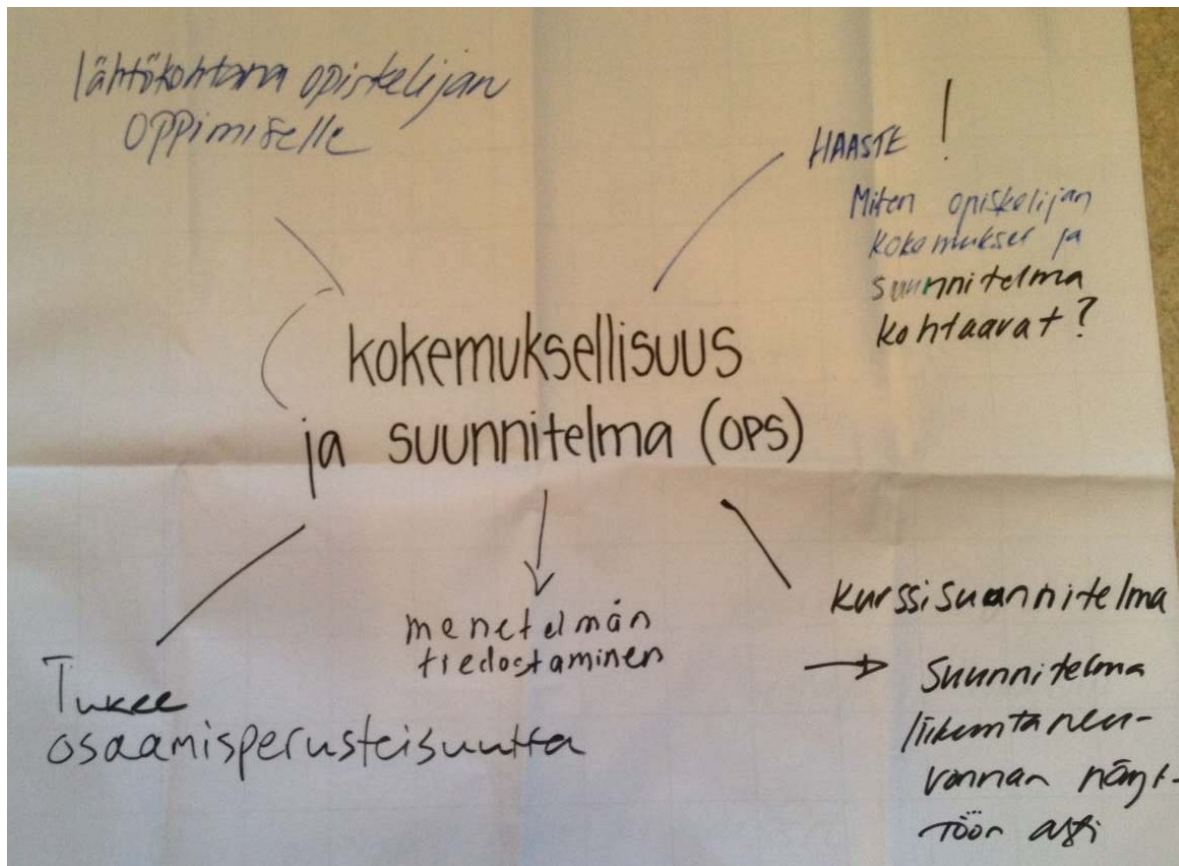 lähtökohtana opiskelijan
oppimiselle
HAASTE !
Miten opiskelijan
kokemukset ja
suunnitelma
kohtaavat?
kokemuksellisuus
ja suunnitelma (OPS)
menetelmän
tiedostaminen
Tukee
osaamisperusteisuutta
kurssisuunnitelma
→ Suunnitelma
liikuntaneu-
vonnan näyt-
töön asti